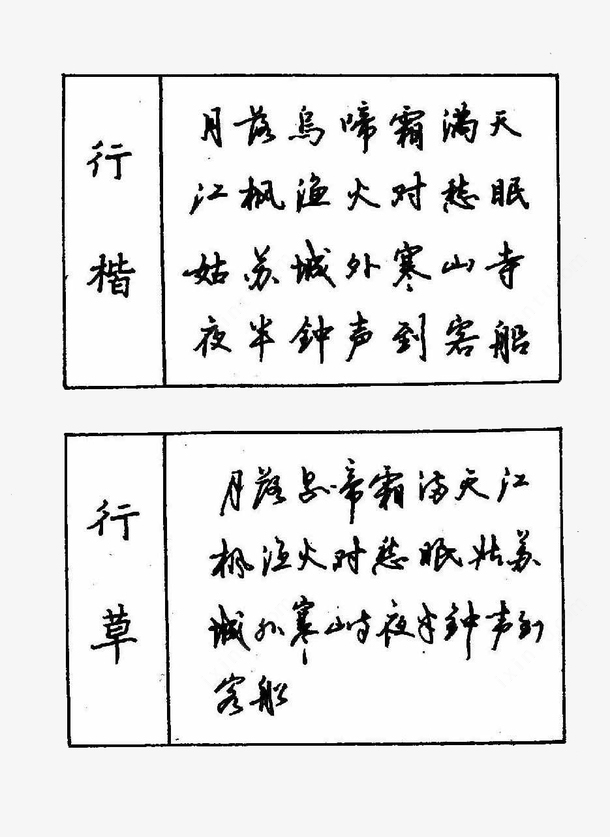 行楷
月落乌啼霜满天
江枫渔火对愁眠
姑苏城外寒山寺
夜半钟声到客船
行草
月落乌啼霜满天江
枫渔火对愁眠姑苏
城外寒山寺夜半钟声到
客船